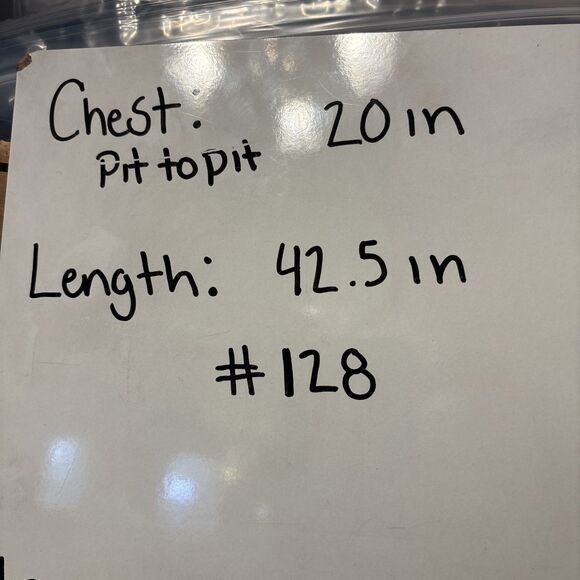 Chest: 20 in
pit to pit
Length: 42.5 in
#128